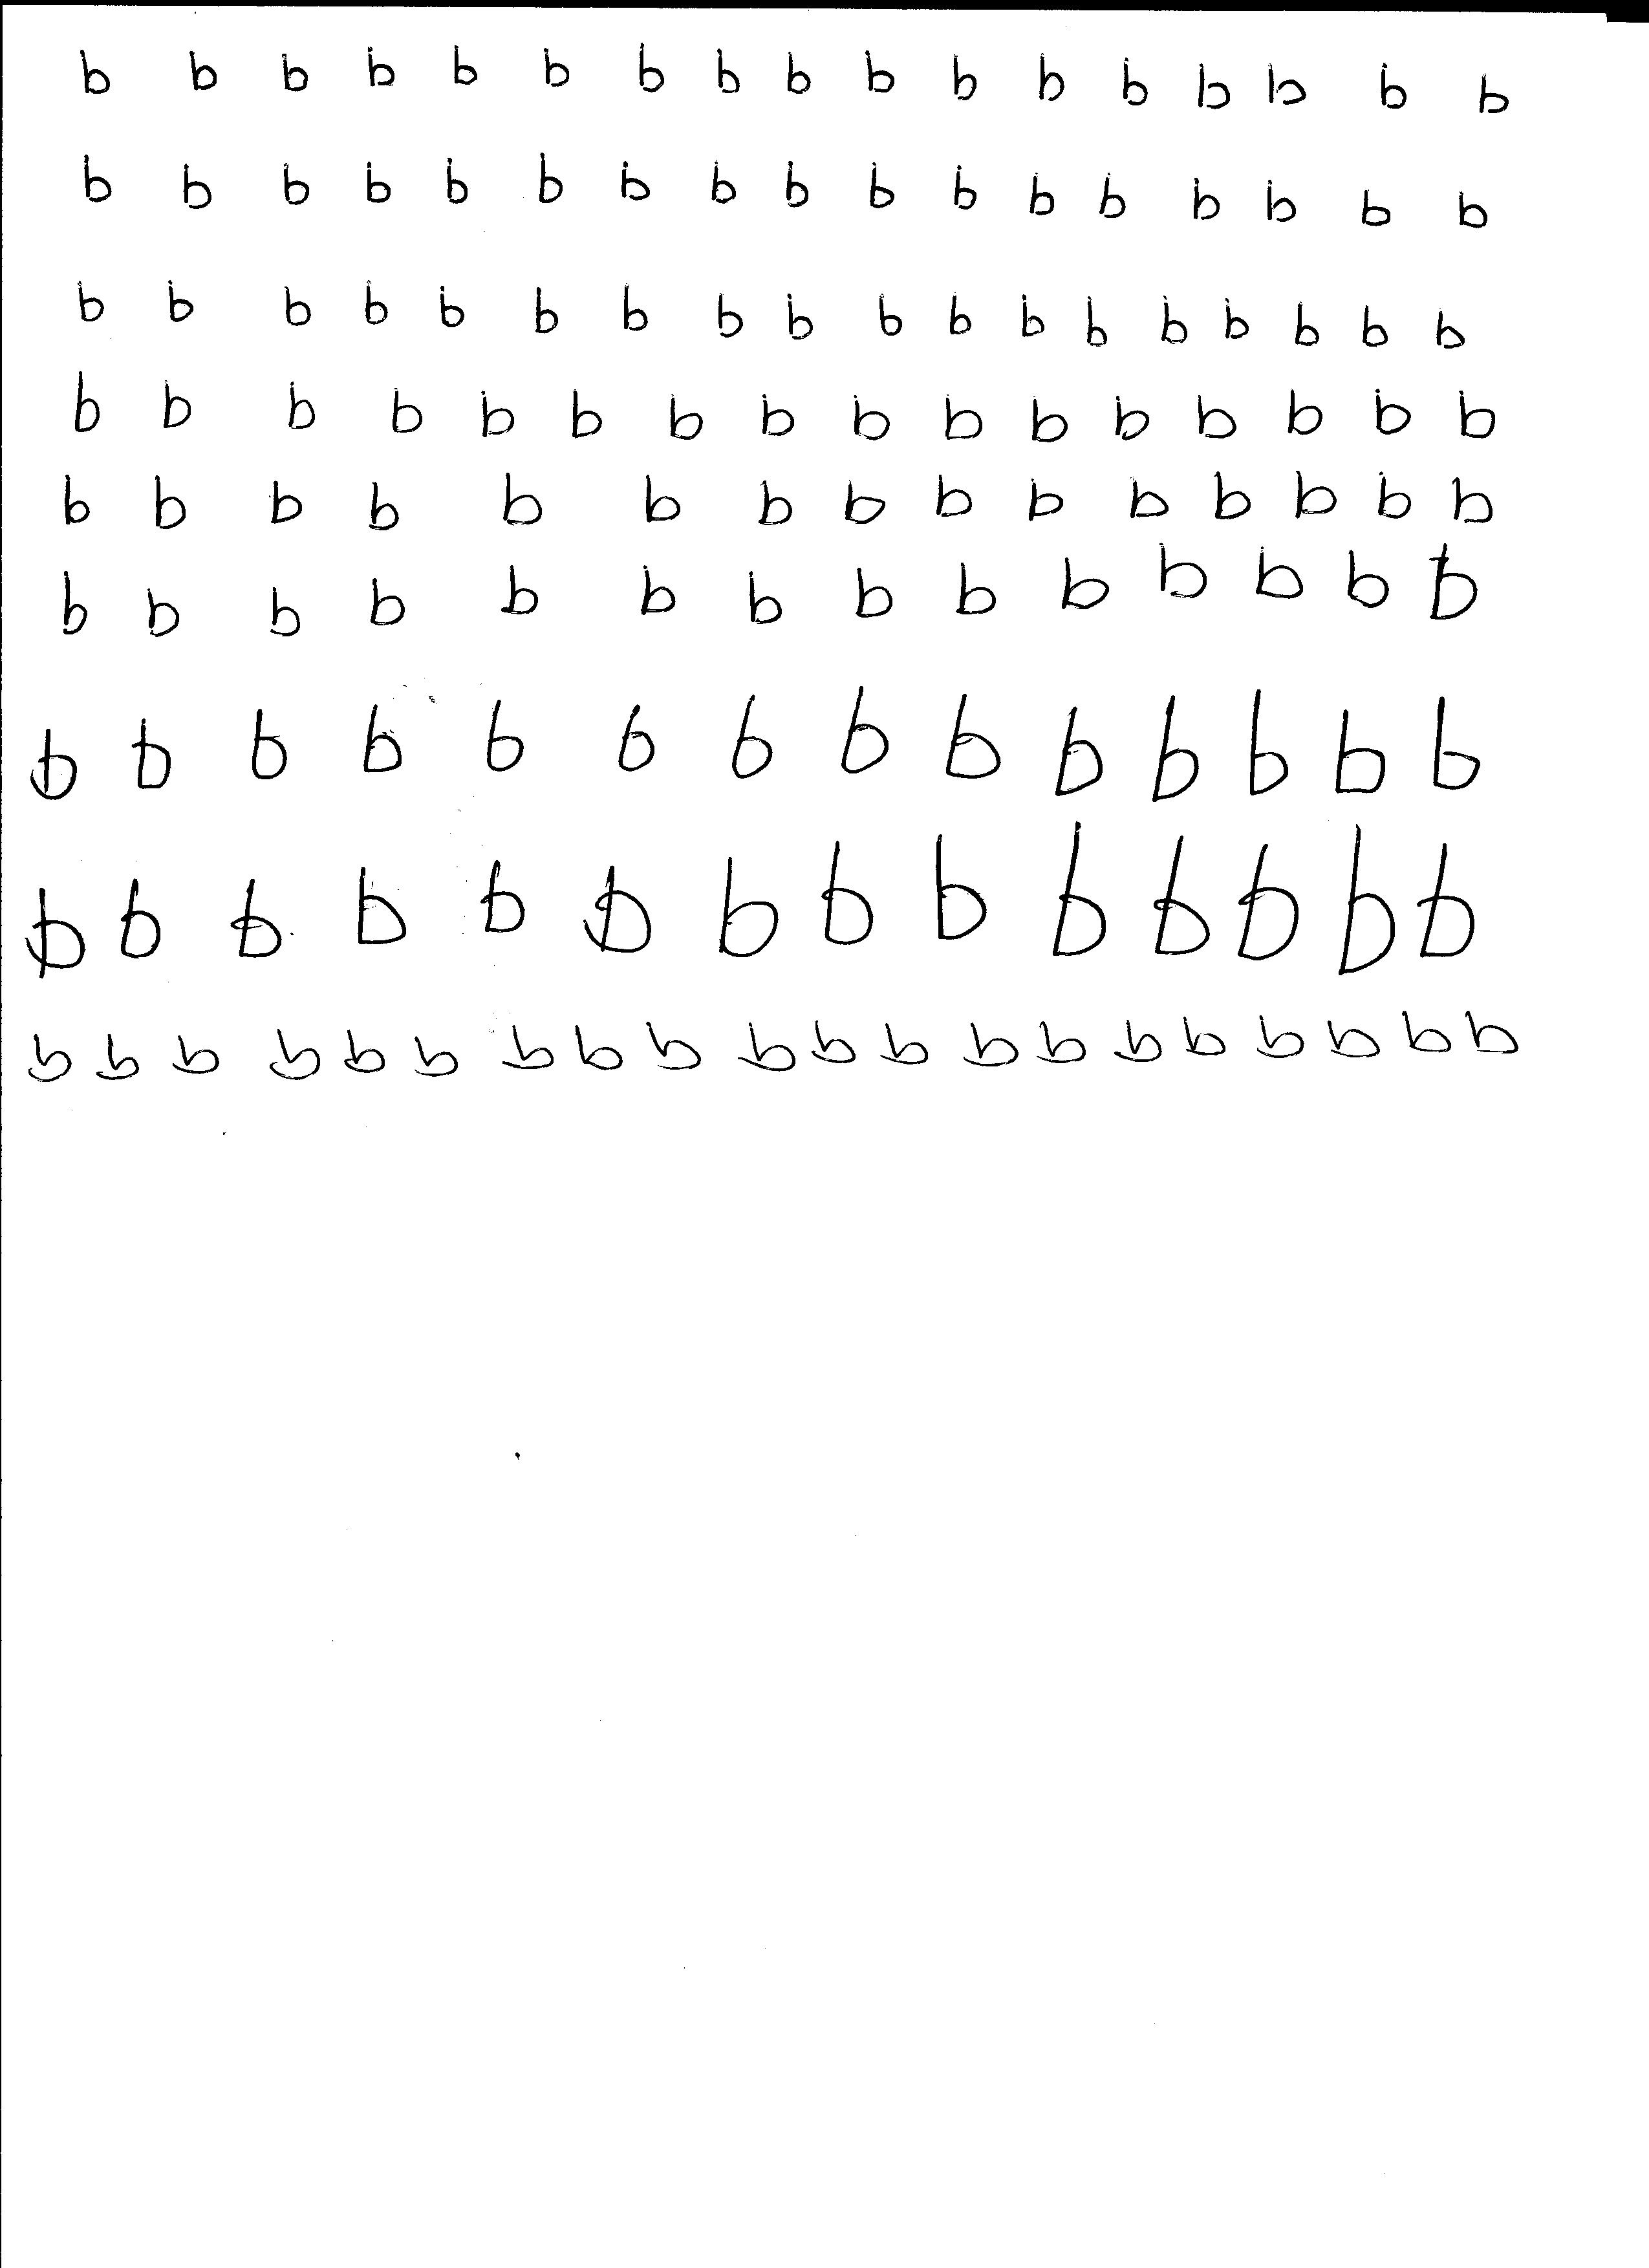 b b b b b b b b b b b b b b b b b
b b b b b b b b b b b b b b b b b
b b b b b b b b b b b b b b b b b b
b b b b b b b b b b b b b b b b
b b b b b b b b b b b b b b b
b b b b b b b b b b b b b b
b b b b b b b b b b b b b b
b b b b b b b b b b b b b b
b b b b b b b b b b b b b b b b b b b b